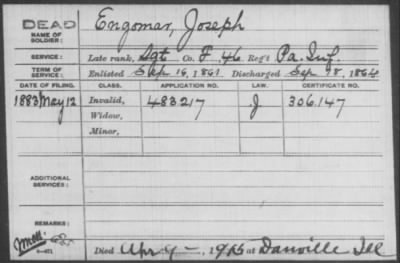 DEAD
NAME OF SOLDIER: Engomar, Joseph
SERVICE: Late rank, Sgt Co. F, 46 Reg't Pa. Inf.
TERM OF SERVICE: Enlisted Sep. 16, 1861 Discharged Sep 18, 1864
DATE OF FILING. CLASS. APPLICATION NO. LAW. CERTIFICATE NO.
1883 May 12 Invalid, 483217 J 306.147
Widow,
Minor,
ADDITIONAL SERVICES:
REMARKS:
Died Apr 9 - 1915 at Danville Ill